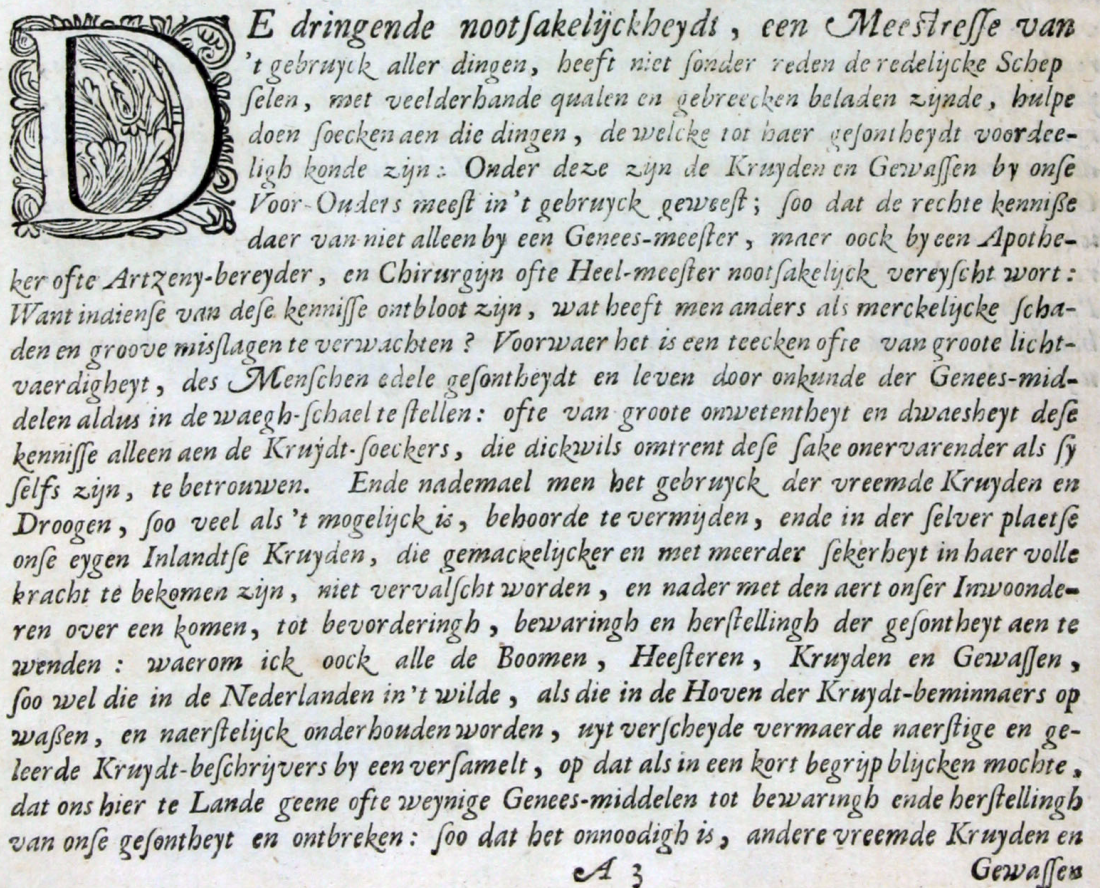 DE dringende nootſakelijckheydt, een Meeſtreſſe van
't gebruyck aller dingen, heeft niet ſonder reden de redelijcke Schep
ſelen, met veelderhande qualen en gebreecken beladen zijnde, hulpe
doen ſoecken aen die dingen, de welcke tot haer geſontheydt voordee-
ligh konde zijn: Onder deze zijn de Kruyden en Gewaſſen by onſe
Voor-Ouders meeſt in 't gebruyck geweeſt; ſoo dat de rechte kenniße
daer van niet alleen by een Genees-meeſter, maer oock by een Apothe-
ker ofte Artzeny-bereyder, en Chirurgijn ofte Heel-meeſter nootſakelijck vereyſcht wort:
Want indienſe van deſe kenniſſe ontbloot zijn, wat heeft men anders als merckelijcke ſcha-
den en groove misſlagen te verwachten? Voorwaer het is een teecken ofte van groote licht-
vaerdigheyt, des Menſchen edele geſontheydt en leven door onkunde der Genees-mid-
delen aldus in de waegh-ſchael te ſtellen: ofte van groote onwetentheyt en dwaesheyt deſe
kenniſſe alleen aen de Kruydt-ſoeckers, die dickwils omtrent deſe ſake onervarender als ſy
ſelfs zijn, te betrouwen. Ende nademael men het gebruyck der vreemde Kruyden en
Droogen, ſoo veel als 't mogelijck is, behoorde te vermijden, ende in der ſelver plaetſe
onſe eygen Inlandtſe Kruyden, die gemackelijcker en met meerder ſekerheyt in haer volle
kracht te bekomen zijn, niet vervalſcht worden, en nader met den aert onſer Inwoonde-
ren over een komen, tot bevorderingh, bewaringh en herſtellingh der geſontheyt aen te
wenden: waerom ick oock alle de Boomen, Heeſteren, Kruyden en Gewaſſen,
ſoo wel die in de Nederlanden in 't wilde, als die in de Hoven der Kruydt-beminnaers op
waßen, en naerſtelijck onderhouden worden, uyt verſcheyde vermaerde naerſtige en ge-
leerde Kruydt-beſchrijvers by een verſamelt, op dat als in een kort begrijp blijcken mochte,
dat ons hier te Lande geene ofte weynige Genees-middelen tot bewaringh ende herſtellingh
van onſe geſontheyt en ontbreken: ſoo dat het onnoodigh is, andere vreemde Kruyden en
A 3 Gewaſſen